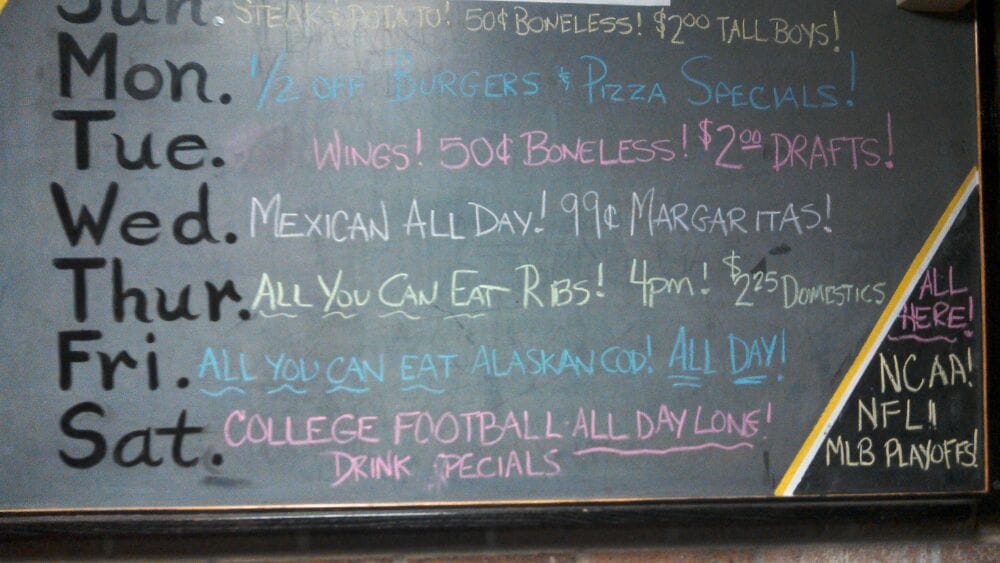 Sun. STEAK & POTATO! 50¢ BONELESS! $2.00 TALL BOYS!
Mon. 1/2 OFF BURGERS & PIZZA SPECIALS!
Tue. WINGS! 50¢ BONELESS! $2.00 DRAFTS!
Wed. MEXICAN ALL DAY! 99¢ MARGARITAS!
Thur. ALL YOU CAN EAT RIBS! 4pm! $2.25 DOMESTICS
Fri. ALL YOU CAN EAT ALASKAN COD! ALL DAY!
Sat. COLLEGE FOOTBALL ALL DAY LONG!
DRINK PECIALS
ALL
HERE!
NCAA!
NFL!!
MLB PLAYOFFS!